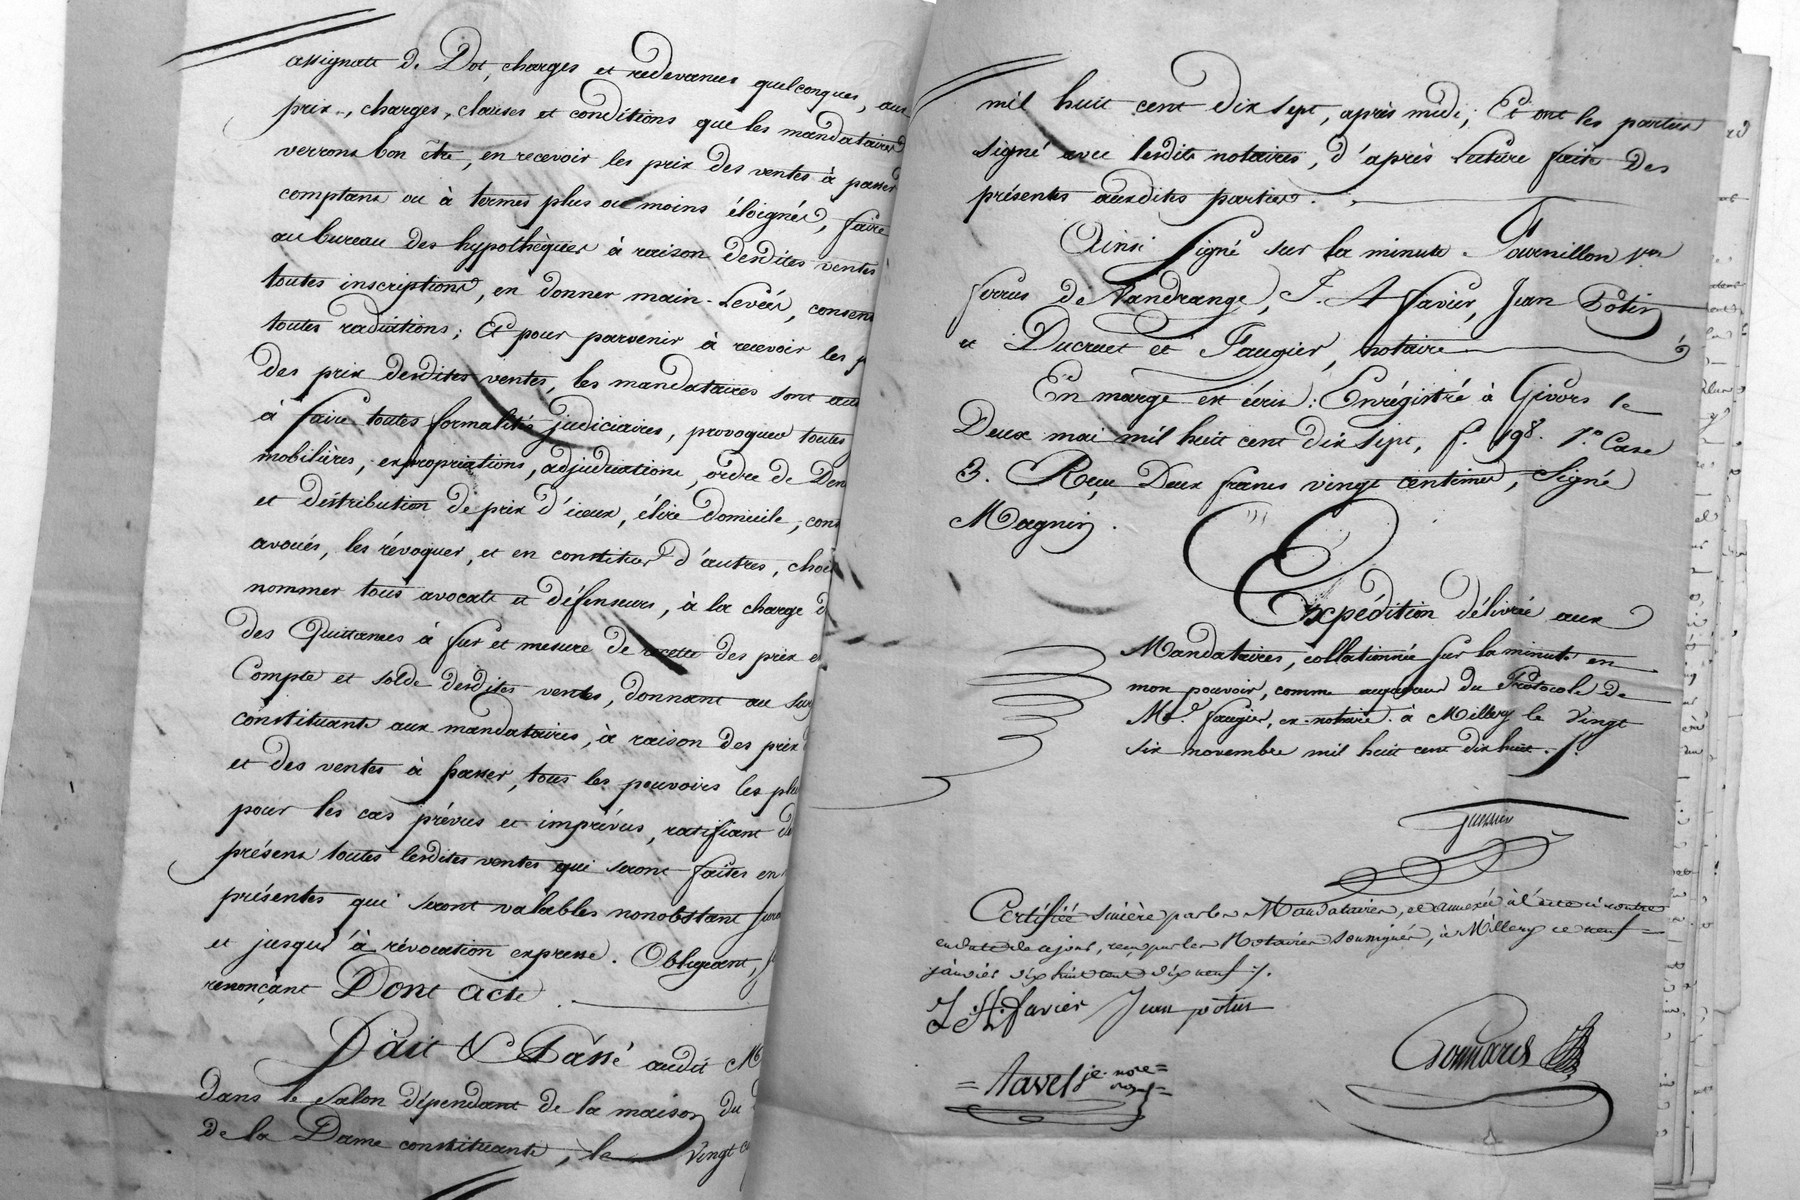 assignats de Dot, charges et redevances quelconques, aux
prix, charges, clauses et conditions que les mandataires
verrons bon être, en recevoir les prix des ventes à passer
comptans ou à termes plus ou moins éloignés, faire
au bureau des hypothèques à raison desdites ventes
toutes inscriptions, en donner main-Levées, consen
toutes radiations; Et pour parvenir à recevoir les p
des prix desdites ventes, les mandataires sont au
à faire toutes formalités judiciaires, provoquer toutes
mobilières, expropriations, adjudications, ordre de Den
et distribution de prix d'iceux, élire domicile, cons
avoués, les révoquer, et en constituer d'autres, choi
nommer tous avocats et défenseurs, à la charge d
des Quittances à fur et mesure de recette des prix e
Compte et solde desdites ventes, donnant au sur
constituante aux mandataires, à raison des prix
et des ventes à passer, tous les pouvoirs les plu
pour les cas prévus et imprévus, ratifiant de
présent toutes lesdites ventes qui seront faites en
présentes qui seront valables nonobstant sur
et jusqu'à révocation expresse. Obligeant,
renonçant Dont acte
Fait & Passé audit M
dans le salon dépendant de la maison du
de la Dame constituante, le vingt
mil huit cent dix sept, après midi; Et ont les parties
signé avec lesdits notaires, d'après Lecture faite Des
présentes auxdites parties.
Ainsi signé sur la minute. Tournillon vve
ferrus de Vandrange, J. A favier, Jean Potin
et Ducruet et Faugier, notaire
En marge est écrit: Enrégistré à Givors le
Deux mai mil huit cent dix sept, f. 198. Vo. Case
3. Reçu Deux francs vingt centimes, Signé
Magnin.
Expédition délivrée aux
Mandataires, collationnée sur la minute en
mon pouvoir, comme acquéreur du Protocole de
Me. Faugier, ex-notaire à Millery le vingt
six novembre mil huit cent dix huit.
Certifiée sincère par les Mandataires, et annexée à l'acte ci contre
en date de ce jour, reçu par les Notaires soussignés, à Millery ce neuf
janvier dix huit cent dix neuf.
J A favier Jean potin
= Navel je. nore =